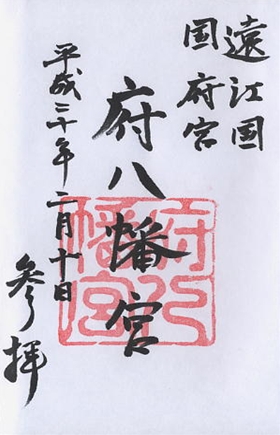 遠江国
国府宮
府八幡宮
平成三十年二月十日
参拝
府八
幡宮